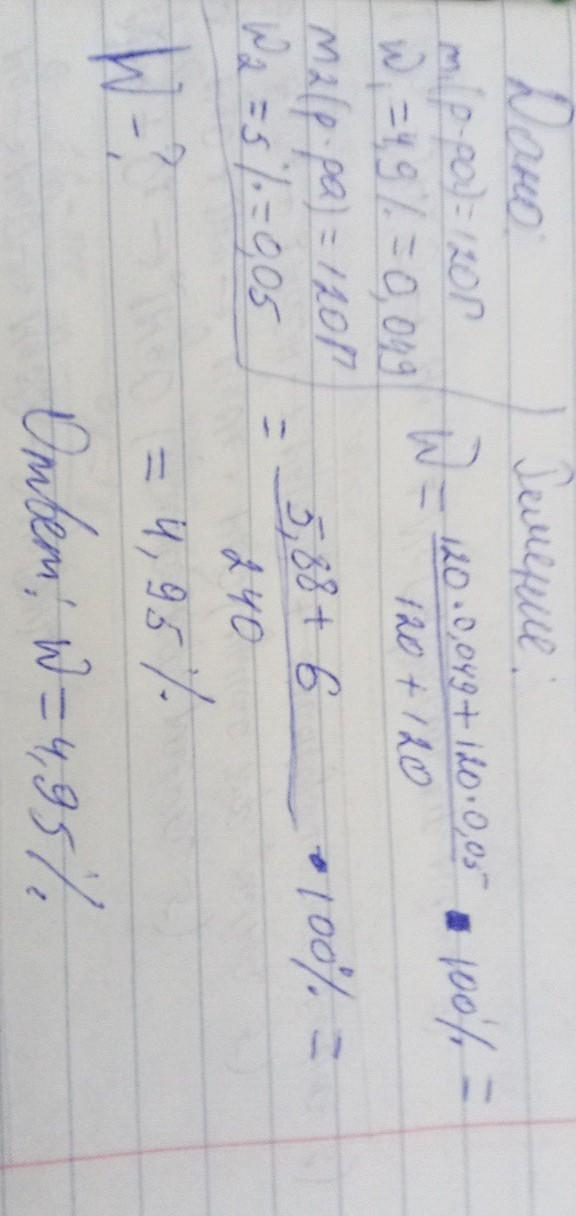 Дано:
m₁(р-ра)=120г
W₁=4,9%=0,049
m₂(р-ра)=120г
W₂=5%=0,05
W-?
Решение:
W = (120·0,049+120·0,05)/(120+120) · 100% =
= (5,88+6)/240 · 100% =
= 4,95%
Ответ: W=4,95%